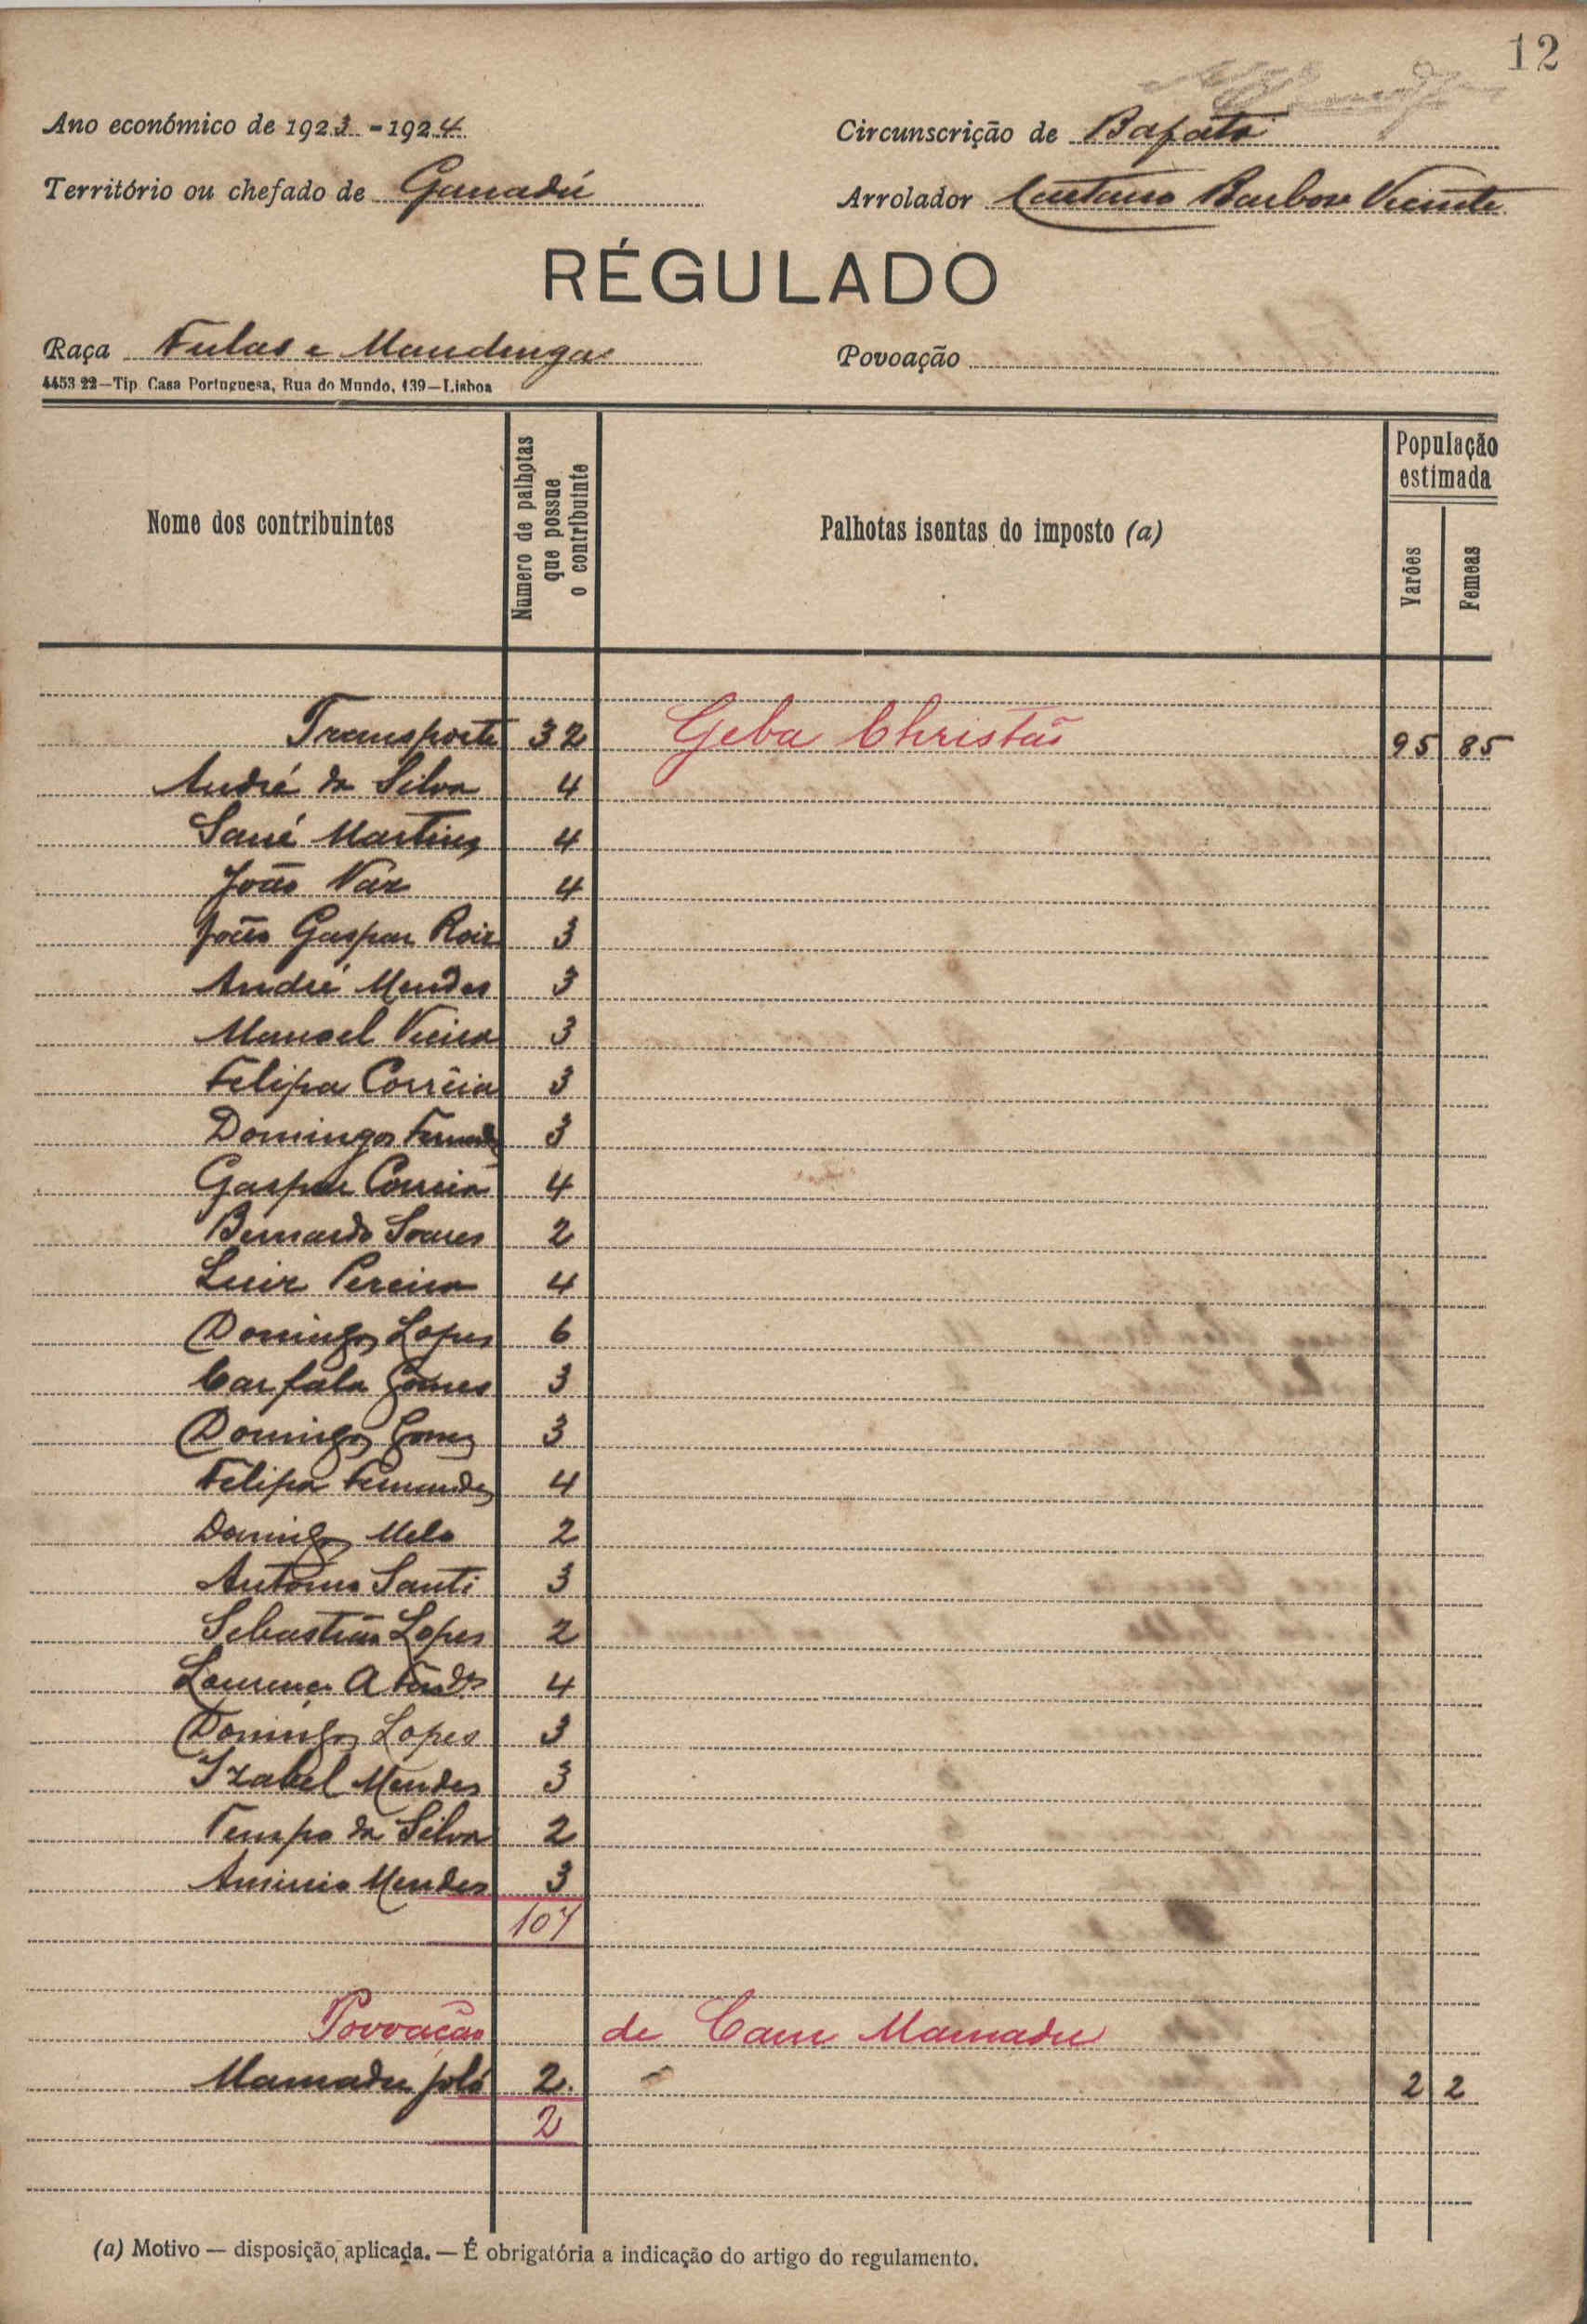 12
Ano económico de 1923-1924 Circunscrição de Bafatá
Território ou chefado de Ganadú Arrolador Caetano Barbosa Vicente
RÉGULADO
Raça Fulas e Mandingas Povoação
4453 22—Tip. Casa Portuguesa, Rua do Mundo, 139—Lisboa
Nome dos contribuintes Número de palhotas que possue o contribuinte Palhotas isentas do imposto (a) População estimada Varões Femeas
Transporte 32 Geba Christão 95 85
André da Silva 4
Sané Martins 4
João Vaz 4
João Gaspar Roiz 3
André Mendes 3
Manoel Vieira 3
Felipa Corrêia 3
Domingos Fernandes 3
Gaspar Correia 4
Bernardo Soares 2
Luiz Pereira 4
Domingos Lopes 6
Carfala Gomes 3
Domingos Gomes 3
Felipa Fernandes 4
Domingos Melo 2
Antonio Santi 3
Sebastião Lopes 2
Lourenço A Fernds 4
Domingos Lopes 3
Izabel Mendes 3
Tempo da Silva 2
Mendes 3
107
Povoação de Cam Mamadu
Mamadu Joló 2 2 2
2
(a) Motivo — disposição, aplicada. — É obrigatória a indicação do artigo do regulamento.